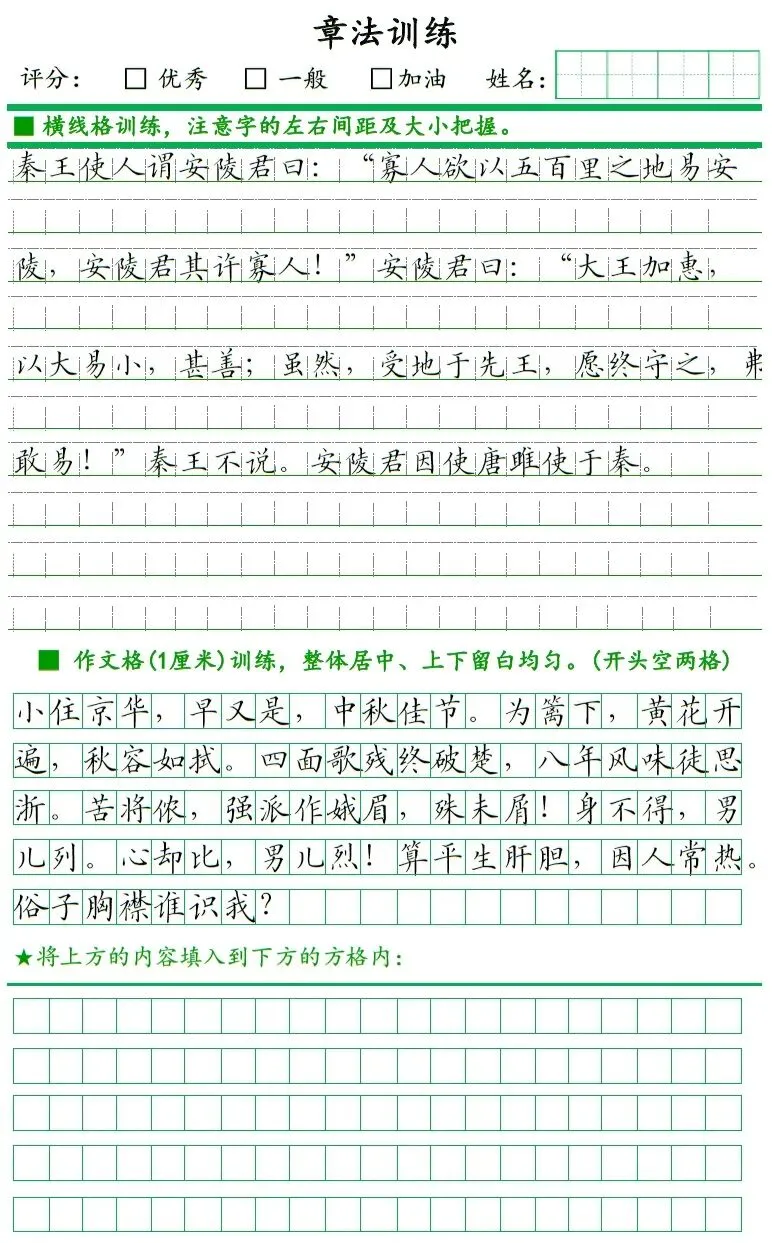 章法训练
评分： □ 优秀 □ 一般 □加油 姓名：
■ 横线格训练，注意字的左右间距及大小把握。
秦王使人谓安陵君曰：“寡人欲以五百里之地易安
陵，安陵君其许寡人！”安陵君曰：“大王加惠，
以大易小，甚善；虽然，受地于先王，愿终守之，弗
敢易！”秦王不说。安陵君因使唐雎使于秦。
■ 作文格(1厘米)训练，整体居中、上下留白均匀。(开头空两格)
小住京华，早又是，中秋佳节。为篱下，黄花开
遍，秋容如拭。四面歌残终破楚，八年风味徒思
浙。苦将侬，强派作娥眉，殊未屑！身不得，男
儿列。心却比，男儿烈！算平生肝胆，因人常热。
俗子胸襟谁识我？
★将上方的内容填入到下方的方格内：